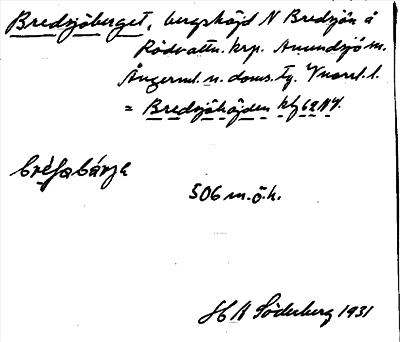 Bredsjöberget, bergshöjd N Bredsjön å
Rödvattn. krp. Anundsjö sn.
Ångerml. n. doms. tg. Vnorrl. l.
= Bredsjöhöjden kbl 62 NV.
506 m.ö.h.
H A Söderberg 1931